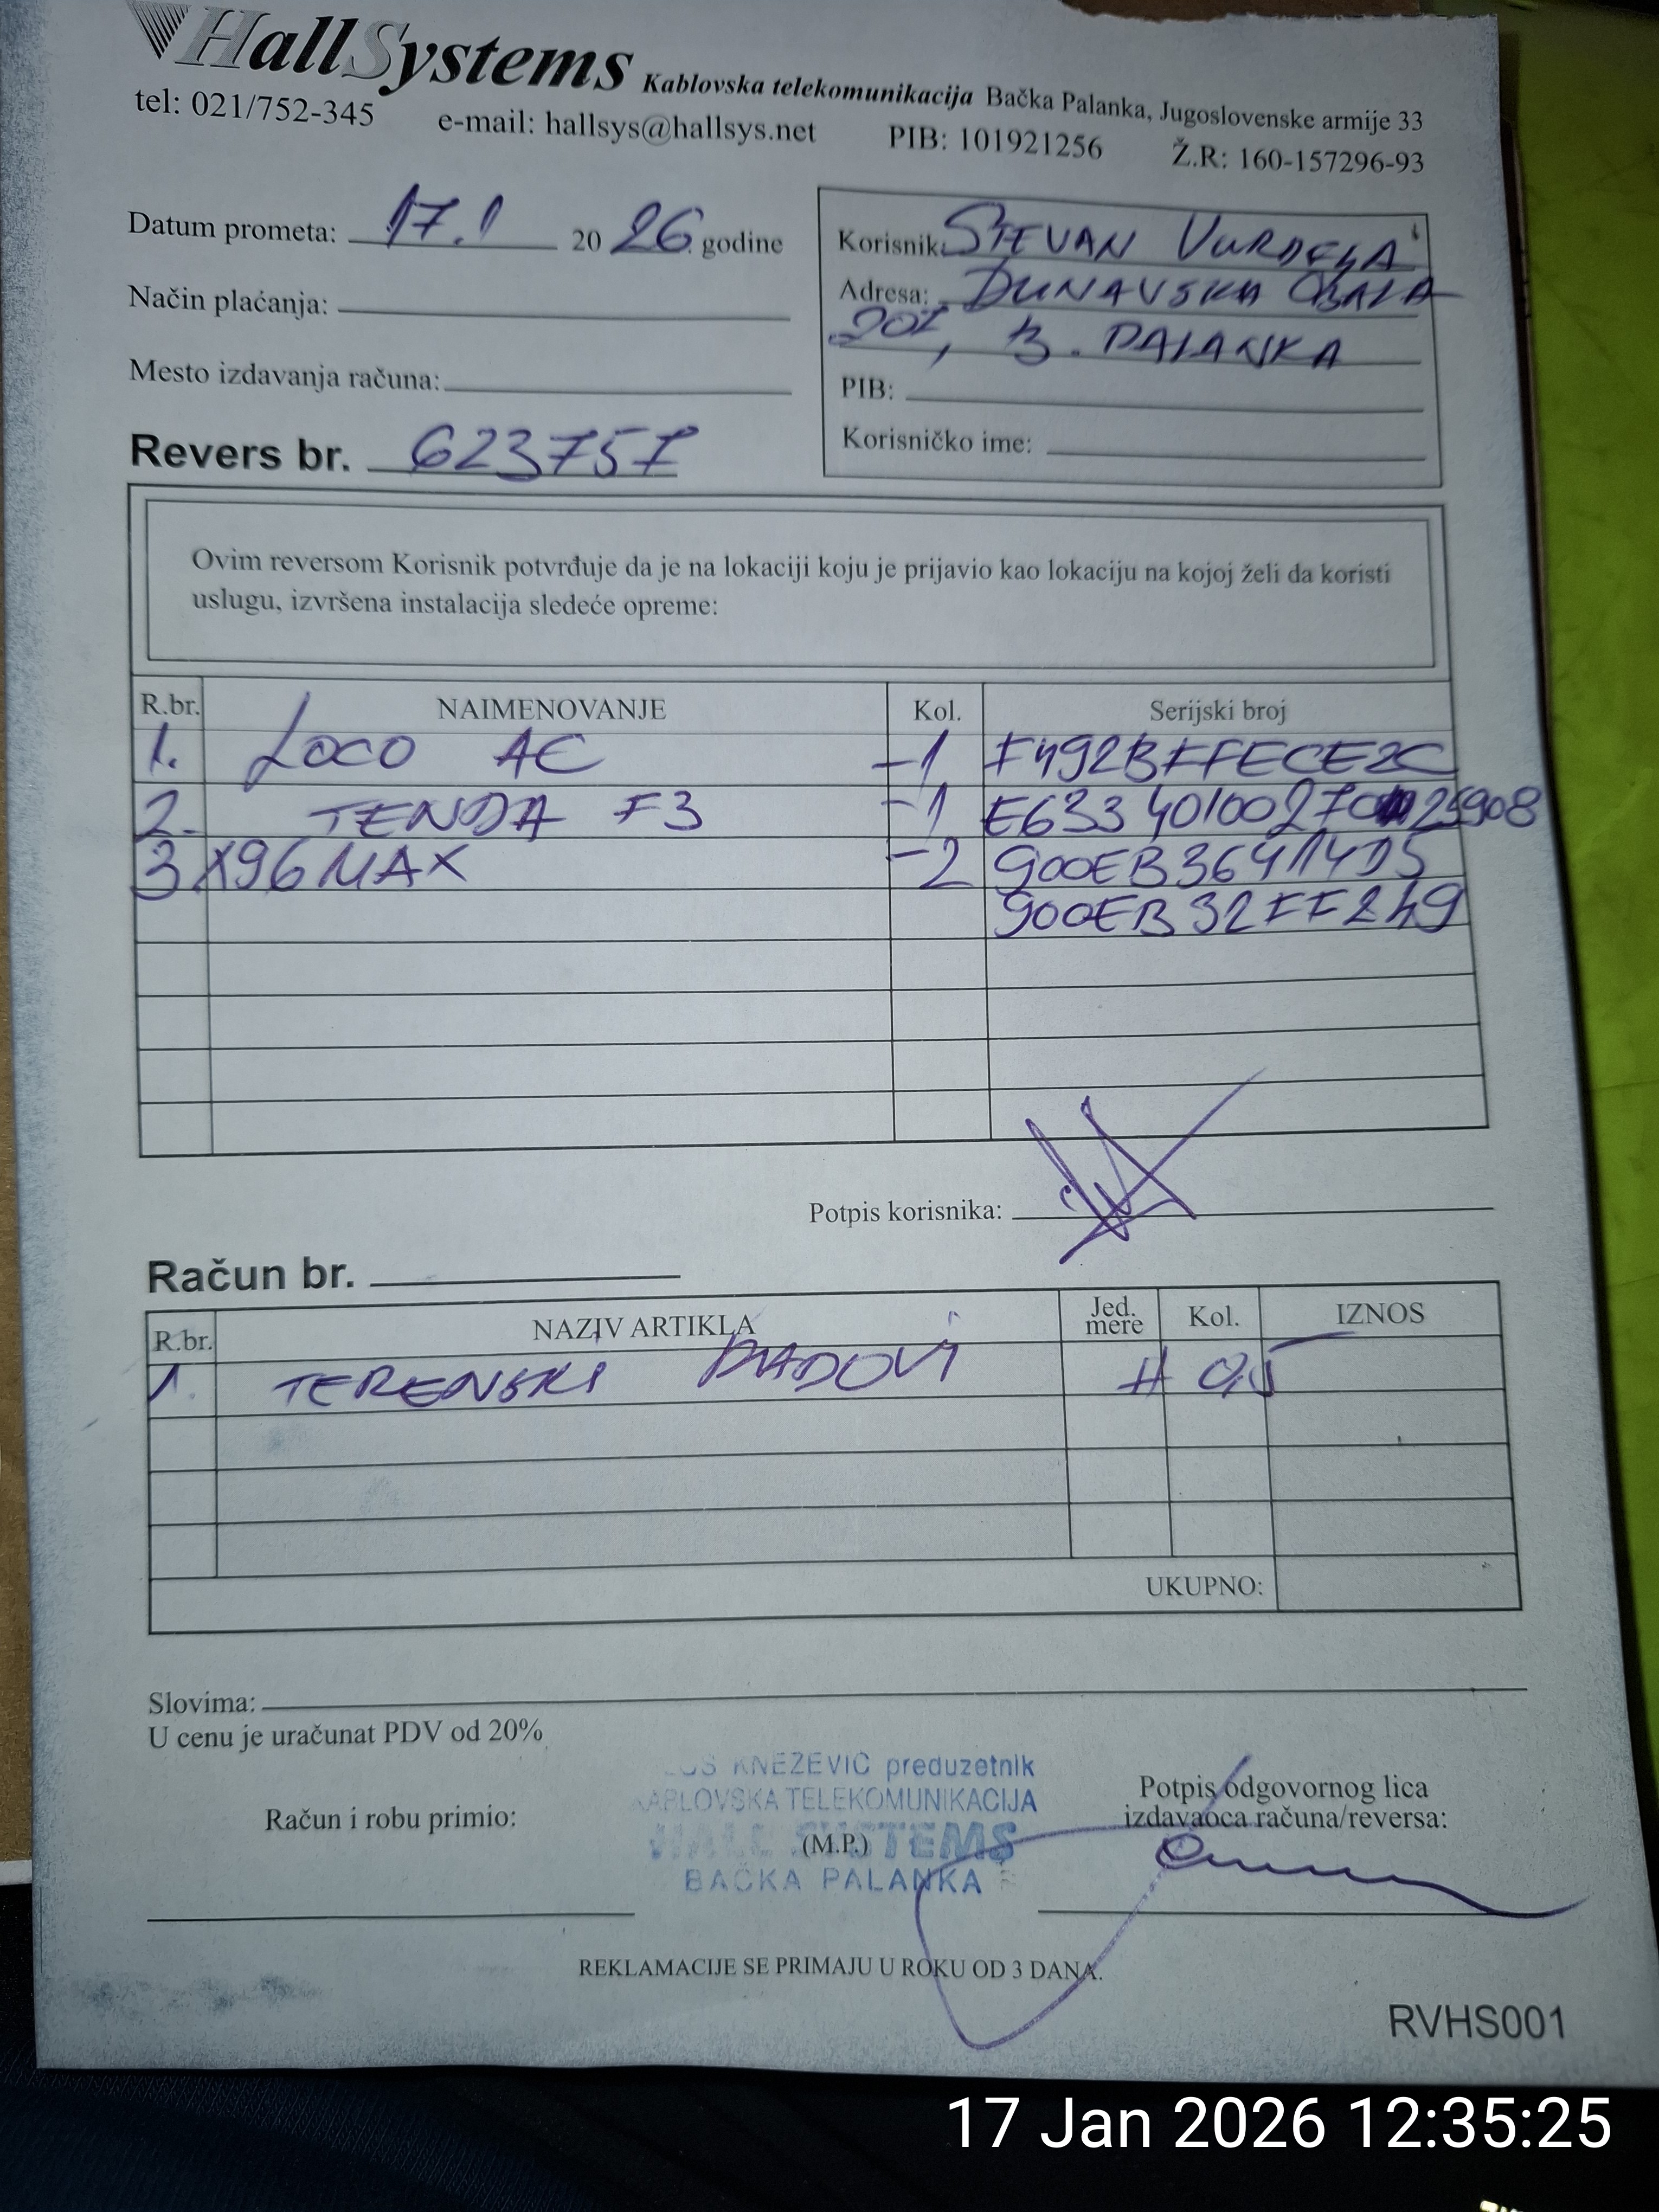 HallSystems Kablovska telekomunikacija Bačka Palanka, Jugoslovenske armije 33
tel: 021/752-345 e-mail: hallsys@hallsys.net PIB: 101921256 Ž.R: 160-157296-93
Datum prometa: 17.1 2026 godine
Način plaćanja:
Mesto izdavanja računa:
Revers br. 623757
Korisnik: STEVAN VURDELJA
Adresa: DUNAVSKA OBALA
207, B. PALANKA
PIB:
Korisničko ime:
Ovim reversom Korisnik potvrđuje da je na lokaciji koju je prijavio kao lokaciju na kojoj želi da koristi
uslugu, izvršena instalacija sledeće opreme:
R.br. NAIMENOVANJE Kol. Serijski broj
1. LOCO AC -1 F492BFFECE2C
2. TENDA F3 -1
3 X96 MAX -2 900EB36411405
900EB32FF249
Potpis korisnika:
Račun br.
R.br. NAZIV ARTIKLA Jed. mere Kol. IZNOS
1. TERENSKI RADOVI H 0,5
UKUPNO:
Slovima:
U cenu je uračunat PDV od 20%
KNEŽEVIĆ preduzetnik
KABLOVSKA TELEKOMUNIKACIJA
HALL SYSTEMS
BAČKA PALANKA
Račun i robu primio:
(M.P.)
Potpis odgovornog lica
izdavaoca računa/reversa:
REKLAMACIJE SE PRIMAJU U ROKU OD 3 DANA.
RVHS001
17 Jan 2026 12:35:25